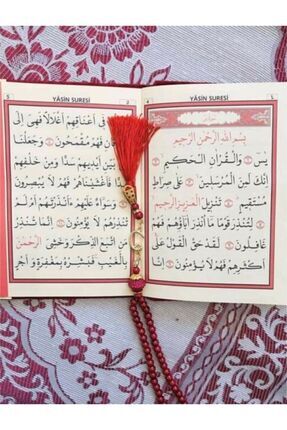 YÂSİN SURESİ
بِسْمِ اللّٰهِ الرَّحْمٰنِ الرَّحِيمِ
يٰسٓ وَالْقُرْاٰنِ الْحَكِيمِ
اِنَّكَ لَمِنَ الْمُرْسَلِينَ عَلٰى صِرَاطٍ
مُسْتَقِيمٍ تَنْزِيلَ الْعَزِيزِ الرَّحِيمِ
لِتُنْذِرَ قَوْمًا مَا اُنْذِرَ اٰبَاؤُهُمْ فَهُمْ
غَافِلُونَ لَقَدْ حَقَّ الْقَوْلُ عَلٰى
اَكْثَرِهِمْ فَهُمْ لَا يُؤْمِنُونَ اِنَّا جَعَلْنَا
YÂSİN SURESİ
فِى اَعْنَاقِهِمْ اَغْلَالًا فَهِىَ اِلَى
فَهُمْ مُقْمَحُونَ وَجَعَلْنَا
بَيْنِ اَيْدِيهِمْ سَدًّا وَمِنْ خَلْفِهِمْ
سَدًّا فَاَغْشَيْنَاهُمْ فَهُمْ لَا يُبْصِرُونَ
وَسَوَاءٌ عَلَيْهِمْ ءَاَنْذَرْتَهُمْ اَمْ لَمْ
تُنْذِرْهُمْ لَا يُؤْمِنُونَ اِنَّمَا تُنْذِرُ
مَنِ اتَّبَعَ الذِّكْرَ وَخَشِىَ الرَّحْمٰنَ
بِالْغَيْبِ فَبَشِّرْهُ بِمَغْفِرَةٍ وَاَجْرٍ